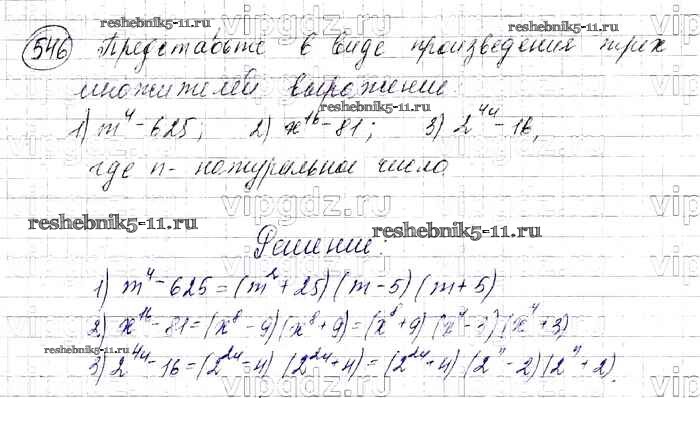 reshebnik5-11.ru
546 Представьте в виде произведения трех
множителей выражение:
reshebnik5-11.ru
1) m⁴-625; 2) x¹⁶-81; 3) 2⁴ⁿ-16,
где n- натуральное число
vipgdz.ru
reshebnik5-11.ru
reshebnik5-11.ru
Решение:
1) m⁴-625=(m²+25)(m-5)(m+5)
2) x¹⁶-81=(x⁸-9)(x⁸+9)=(x⁸+9)(x⁴-3)(x⁴+3)
reshebnik5-11.ru
3) 2⁴ⁿ-16=(2²ⁿ-4)(2²ⁿ+4)=(2²ⁿ+4)(2ⁿ-2)(2ⁿ+2).
vipgdz.ru